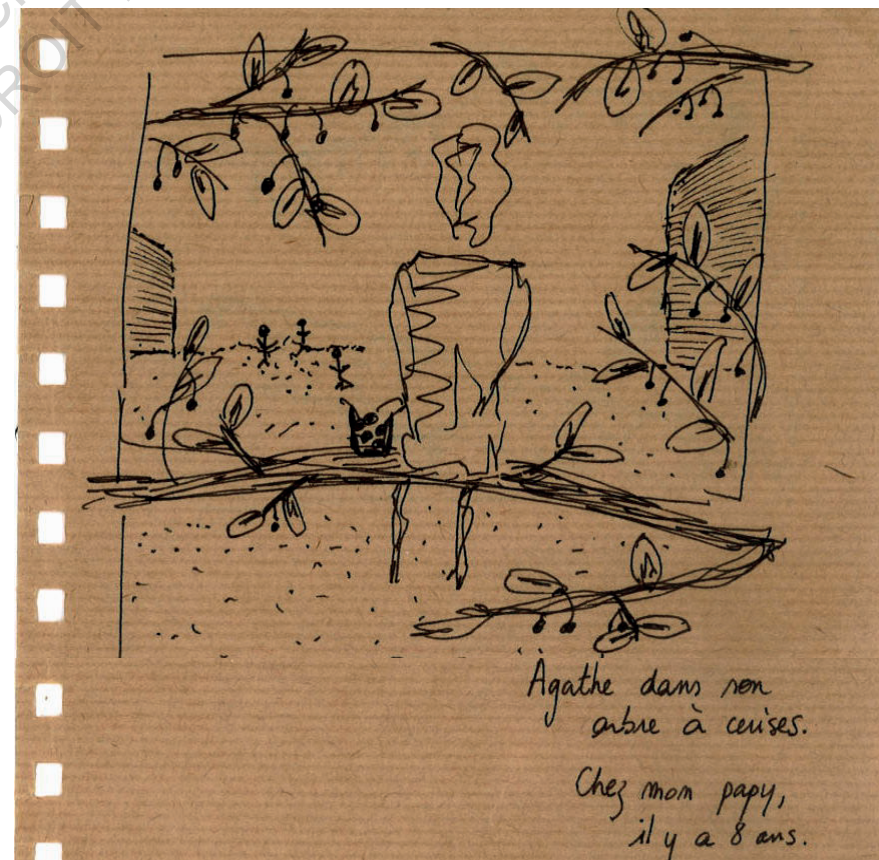 DROIT
Agathe dans son
arbre à cerises.
Chez mon papy,
il y a 8 ans.